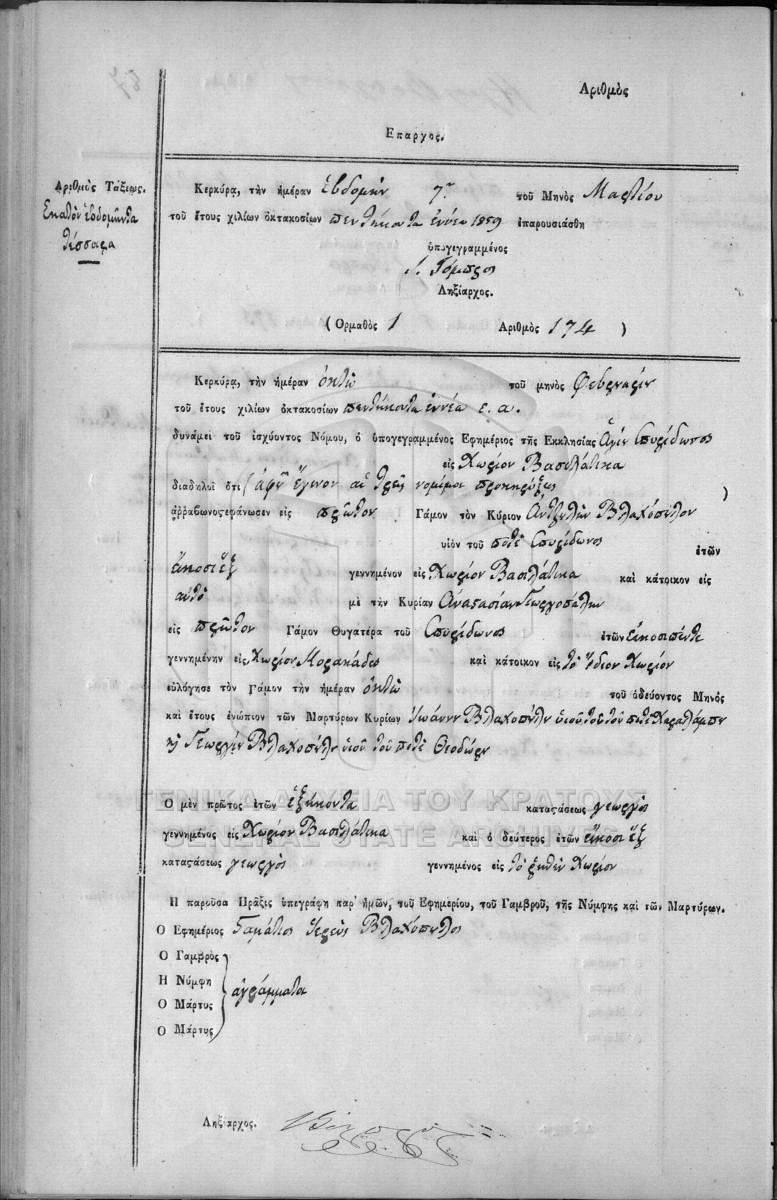 Αριθμὸς
Επαρχος.
Αριθμὸς Τάξεως.
Εκατὸν ἑβδομῆντα
τέσσαρα
Κερκύρα, τὴν ἡμέραν ἑβδομην 7ην τοῦ Μηνὸς Μαρτίου
τοῦ ἔτους χιλίων ὀκτακοσίων πεντήκοντα ἐννέα 1859 ἐπαρουσιάσθη
ὑπογεγραμμένος
Ληξίαρχος.
(Ορμαθὸς 1 Αριθμὸς 174 )
Κερκύρα, τὴν ἡμέραν ὀκτὼ τοῦ μηνὸς Φεβρυαρίυ
τοῦ ἔτους χιλίων ὀκτακοσίων πεντήκοντα ἐννέα ε. α.
δυνάμει τοῦ ἰσχύοντος Νόμου, ὁ ὑπογεγραμμένος Εφημέριος τῆς Εκκλησίας Ἁγίυ Σπυρίδωνος
εἰς Χωρίον Βασιλάτικα
διαδηλοῖ ὅτι ( ἀφ' ἔγινον αἱ τρεῖς νομίμοι προκηρύξεις )
ἀῤῥαβωνοςεφάνωσεν εἰς πρῶτον Γάμον τὸν Κύριον Αντζυλὴν Βλαχόπυλον
υἱὸν τοῦ ποτὲ Σπυρίδωνος ἐτῶν
ἴκοσι ἕξ γεννημένον εἰς Χωρίον Βασιλάτικα καὶ κάτοικον εἰς
αὐτὸ μὲ τὴν Κυρίαν Αναςασίαν Γεωργοπύλυ
εἰς πρῶτον Γάμον Θυγατέρα τοῦ Σπυρίδωνος ἐτῶν εἰκοσιπέντε
γεννημένην εἰς Χωρίον Μορακάδες καὶ κάτοικον εἰς τὸ ἴδιον Χωρίον
εὐλόγησε τὸν Γάμον τὴν ἡμέραν ὀκτὼ τοῦ ὁδεύοντος Μηνὸς
καὶ ἔτους ἐνώπιον τῶν Μαρτύρων Κυρίων Ἰωάννυ Βλαχοπύλυ ὑιοῦ τοῦ ποτὲ Χαραλάμπυ
κὴ Γεωργίυ Βλαχοπύλυ ὑιοῦ τοῦ ποτὲ Θεοδώρυ
Ο μὲν πρῶτος ἐτῶν ἑξήκοντα καταςάσεως γεωργὸς
γεννημένος εἰς Χωρίον Βασιλάτικα καὶ ὁ δεύτερος ἐτῶν εἴκοσι ἕξ
καταςάσεως γεωργὸς γεννημένος εἰς τὸ ῥηθὲν Χωρίον
ΓΕΝΙΚΑ ΑΡΧΕΙΑ ΤΟΥ ΚΡΑΤΟΥΣ
GENERAL STATE ARCHIVES
Η παροῦσα Πρᾶξις ὑπεγράφη παρ' ἡμῶν, τοῦ Εφημερίου, τοῦ Γαμβροῦ, τῆς Νύμφης καὶ τῶν Μαρτύρων.
Ο Εφημέριος Σαμάτιος Ἱερεὺς Βλαχόπυλος
Ο Γαμβρὸς
Η Νύμφη
ἀγράμματοι
Ο Μάρτυς
Ο Μάρτυς
Ληξίαρχος.